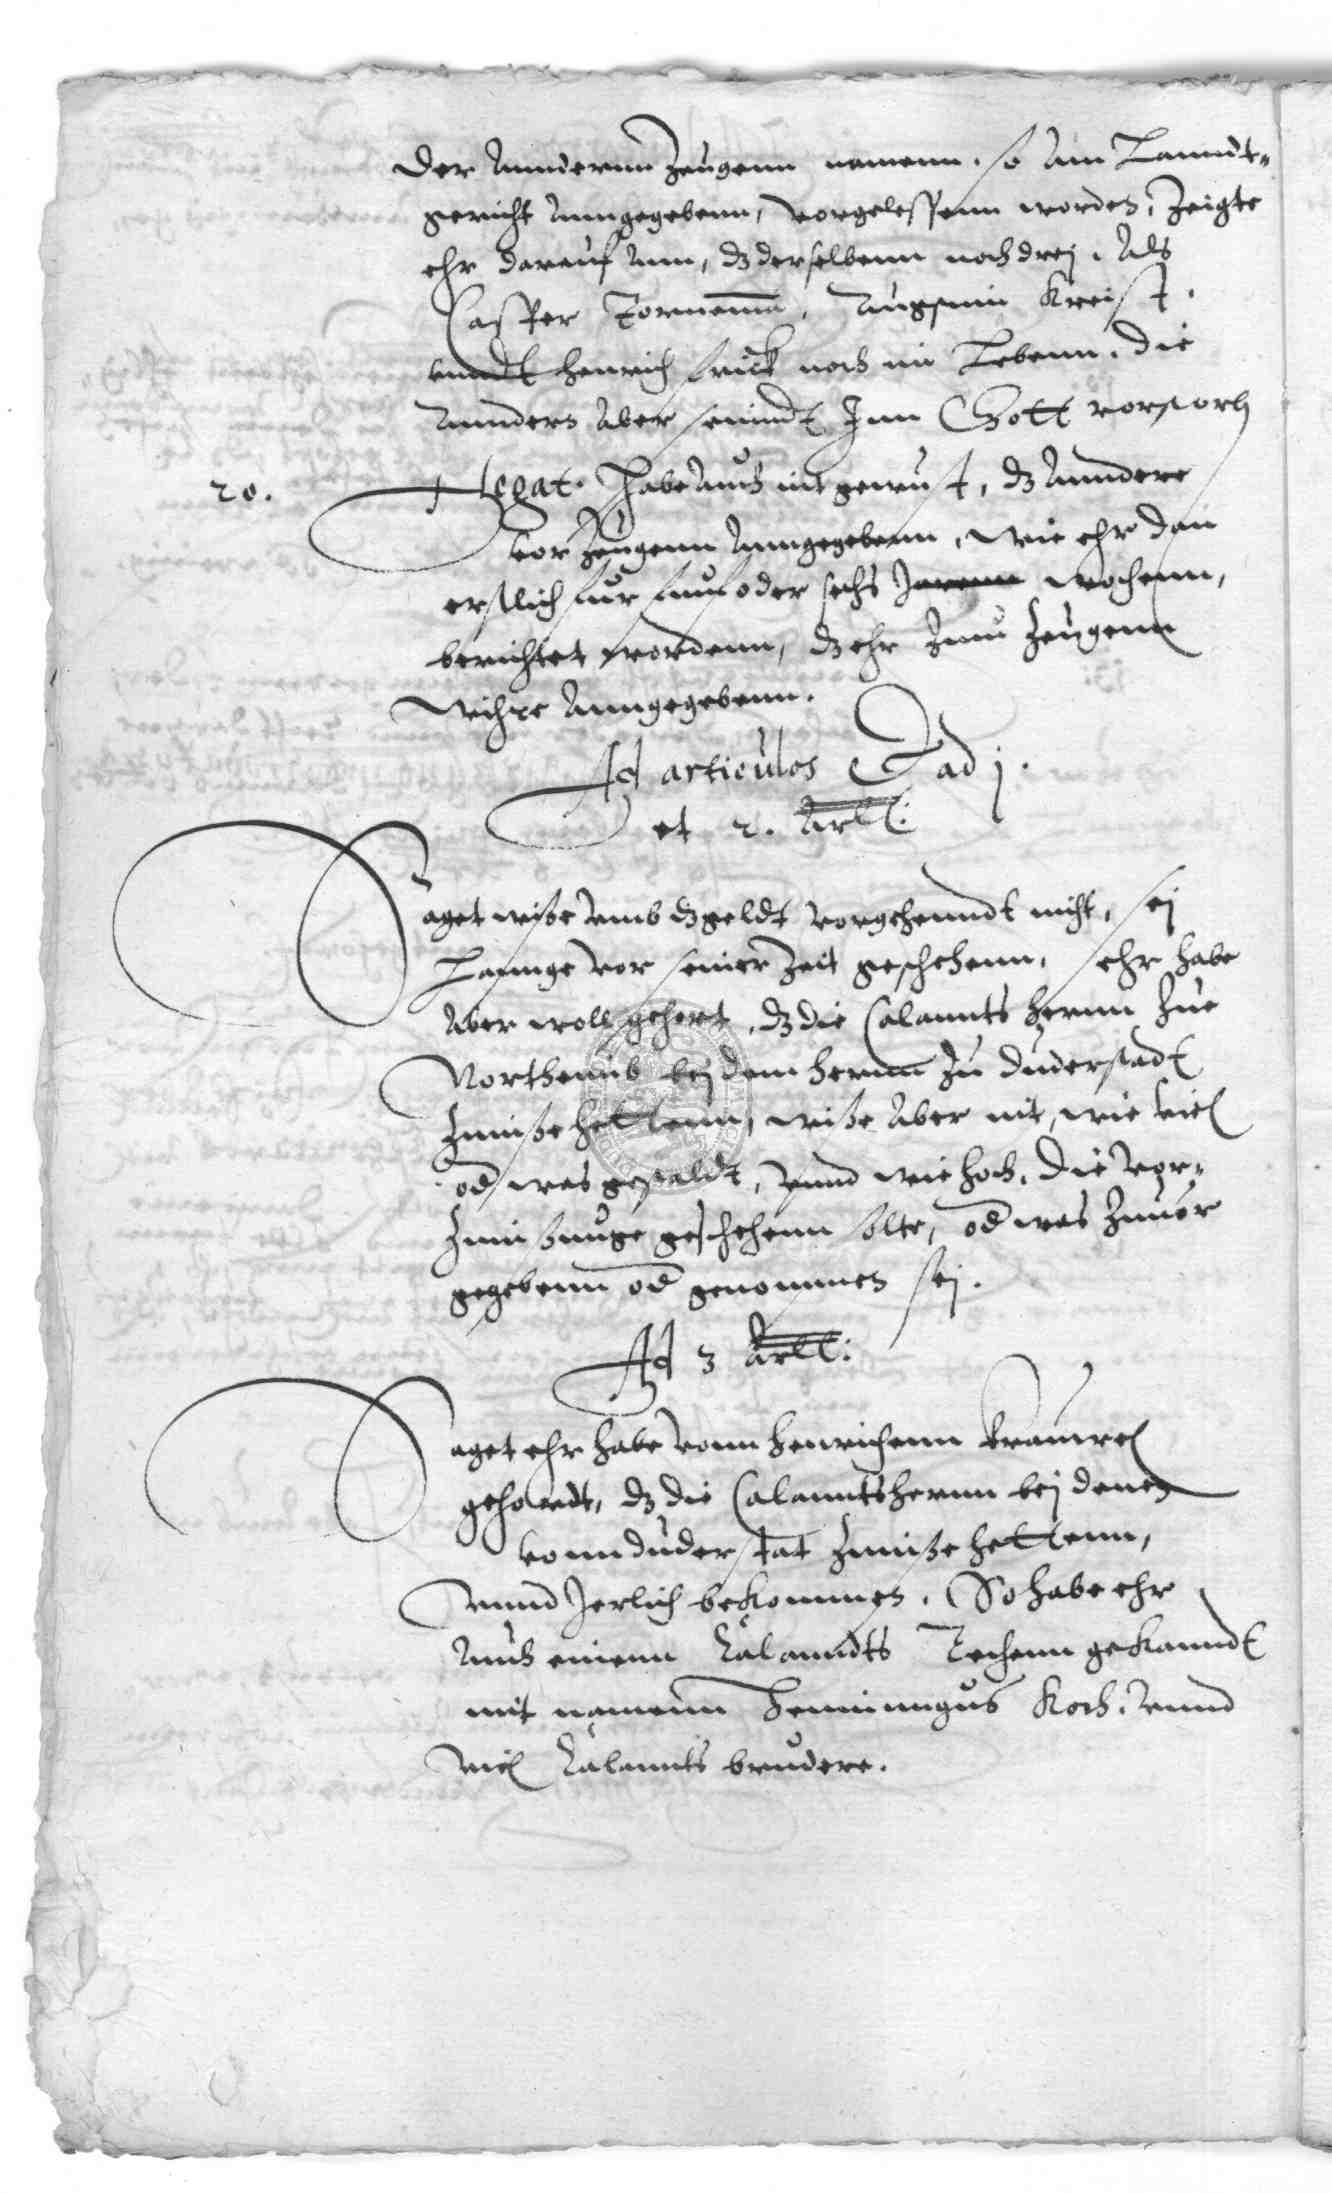 Der Anndernn Zeugenn namenn, so Am Lanndt-
gericht Anngegebenn, vorgelessenn worden, Zeigte
ehr darauf Ann, dz derselbenn noch drej, Als
Casper Tornemā,  Kreist,
vnndt Henrich frick noch im Lebenn, die
Anndern Aber seinndt Inn Gott vorstorb
20. Negat. Habe Auch nit gewust, dz Anndere
vor Zeugenn Anngegebenn, wie ehr dan
erstlich fur funf oder sechs Jarenn wochenn,
berichtet wordenn, dz ehr Zum Zeugenn
wehre Anngegebenn.
Ad articulos Et ad j.
et 2. Artl:
Saget wiße vmb dz geldt vorgehenndt nicht, sej
Lannge vor seiner Zeit geschehenn, ehr habe
Aber woll gehort, dz die Calannts hernn Zue
Northeimb bej dem hernn Zu Duderstadt
Zinnße hettenn, wiße Aber nit, wie viel
od was gestaldt, vnnd wie hoch, die vor-
Zinnßunge geschehenn solte, od was Zuuor
gegebenn od genommen sej.
Ad 3 Artl:
Saget ehr habe vonn Henrichenn
gehordt, dz die Calanntshernn bej denen
vonn Duderstat Zinnße hettenn,
vnnd Jerlich bekommen. So habe ehr
Auch einenn Calanndts Techenn gekanndt
mit namenn Henninngus Koch, vnnd
viel Calannts brudere.